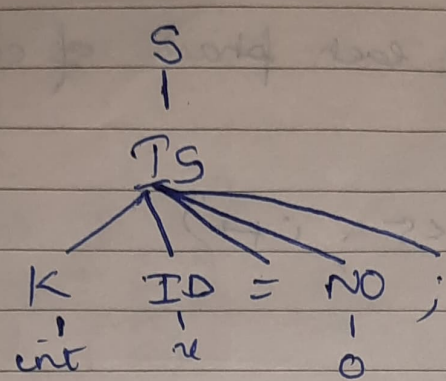 S
TS
K ID = NO ;
int x 0